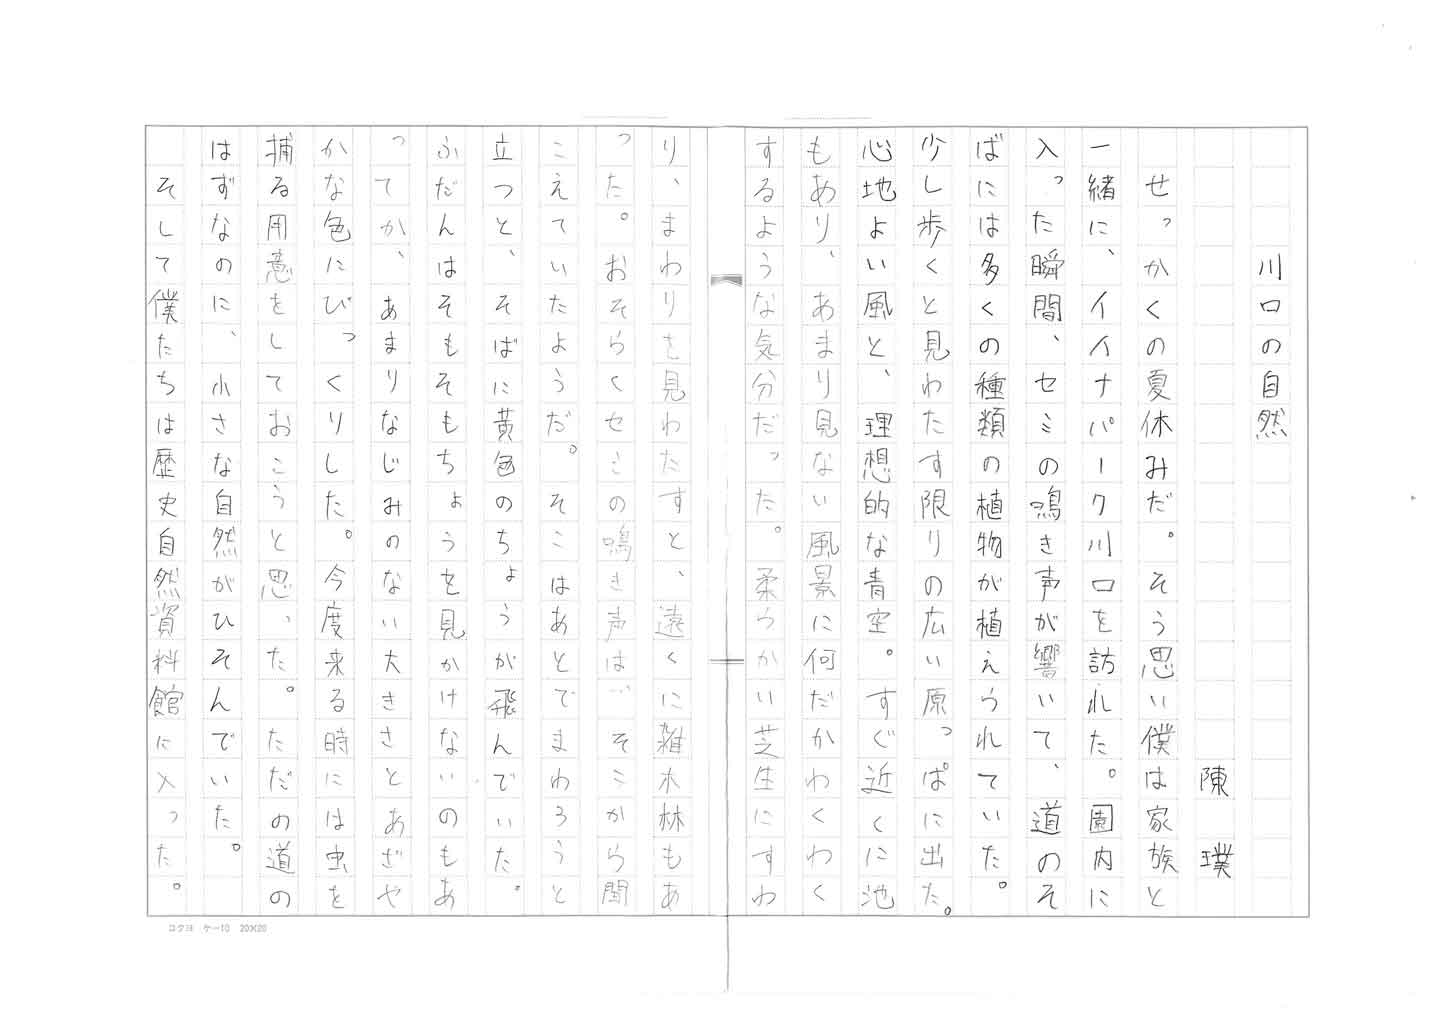 川口の自然
陳璞
せっかくの夏休みだ。そう思い僕は家族と
一緒に、イイナパーク川口を訪れた。園内に
入った瞬間、セミの鳴き声が響いて、道のそ
ばには多くの種類の植物が植えられていた。
少し歩くと見わたす限りの広い原っぱに出た。
心地よい風と、理想的な青空。すぐ近くに池
もあり、あまり見ない風景に何だかわくわく
するような気分だった。柔らかい芝生にすわ
り、まわりを見わたすと、遠くに雑木林もあ
った。おそらくセミの鳴き声は、そこから聞
こえていたようだ。そこはあとでまわろうと
立つと、そばに黄色のちょうが飛んでいた。
ふだんはそもそもちょうを見かけないのもあ
ってか、あまりなじみのない大きさとあざや
かな色にびっくりした。今度来る時には虫を
捕る用意をしておこうと思った。ただの道の
はずなのに、小さな自然がひそんでいた。
そして僕たちは歴史自然資料館に入った。
コクヨ ケー10 20×20